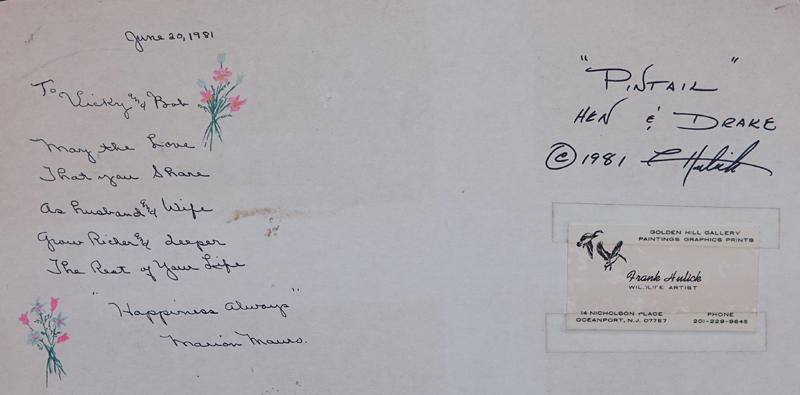 June 20, 1981
To Vicky & Bob
May the Love
That you Share
As husband & Wife
Grow Richer & deeper
The Rest of Your Life
"Happiness Always"
Marion Mauro.
"PINTAIL"
HEN & DRAKE
© 1981 F Hulick
GOLDEN HILL GALLERY
PAINTINGS GRAPHICS PRINTS
Frank Hulick
WILDLIFE ARTIST
14 NICHOLSON PLACE
OCEANPORT, N.J. 07757
PHONE
201-229-9645